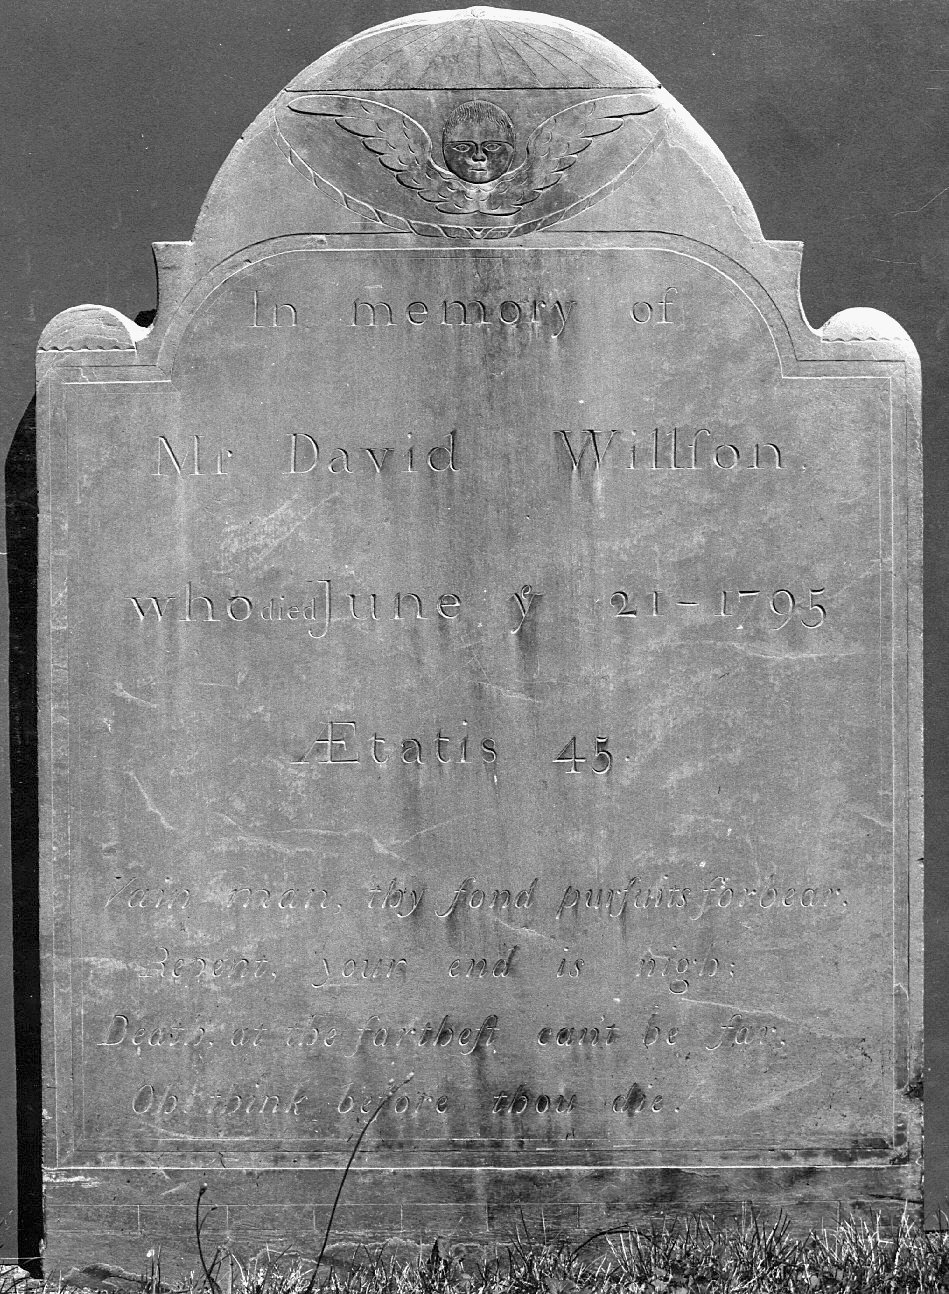 In memory of
Mr David Willſon.
who died June yᵉ 21–1795
Ætatis 45.
Vain man, thy fond purſuits forbear,
Repent, your end is nigh;
Death, at the fartheſt can't be far,
Oh! think before thou die.